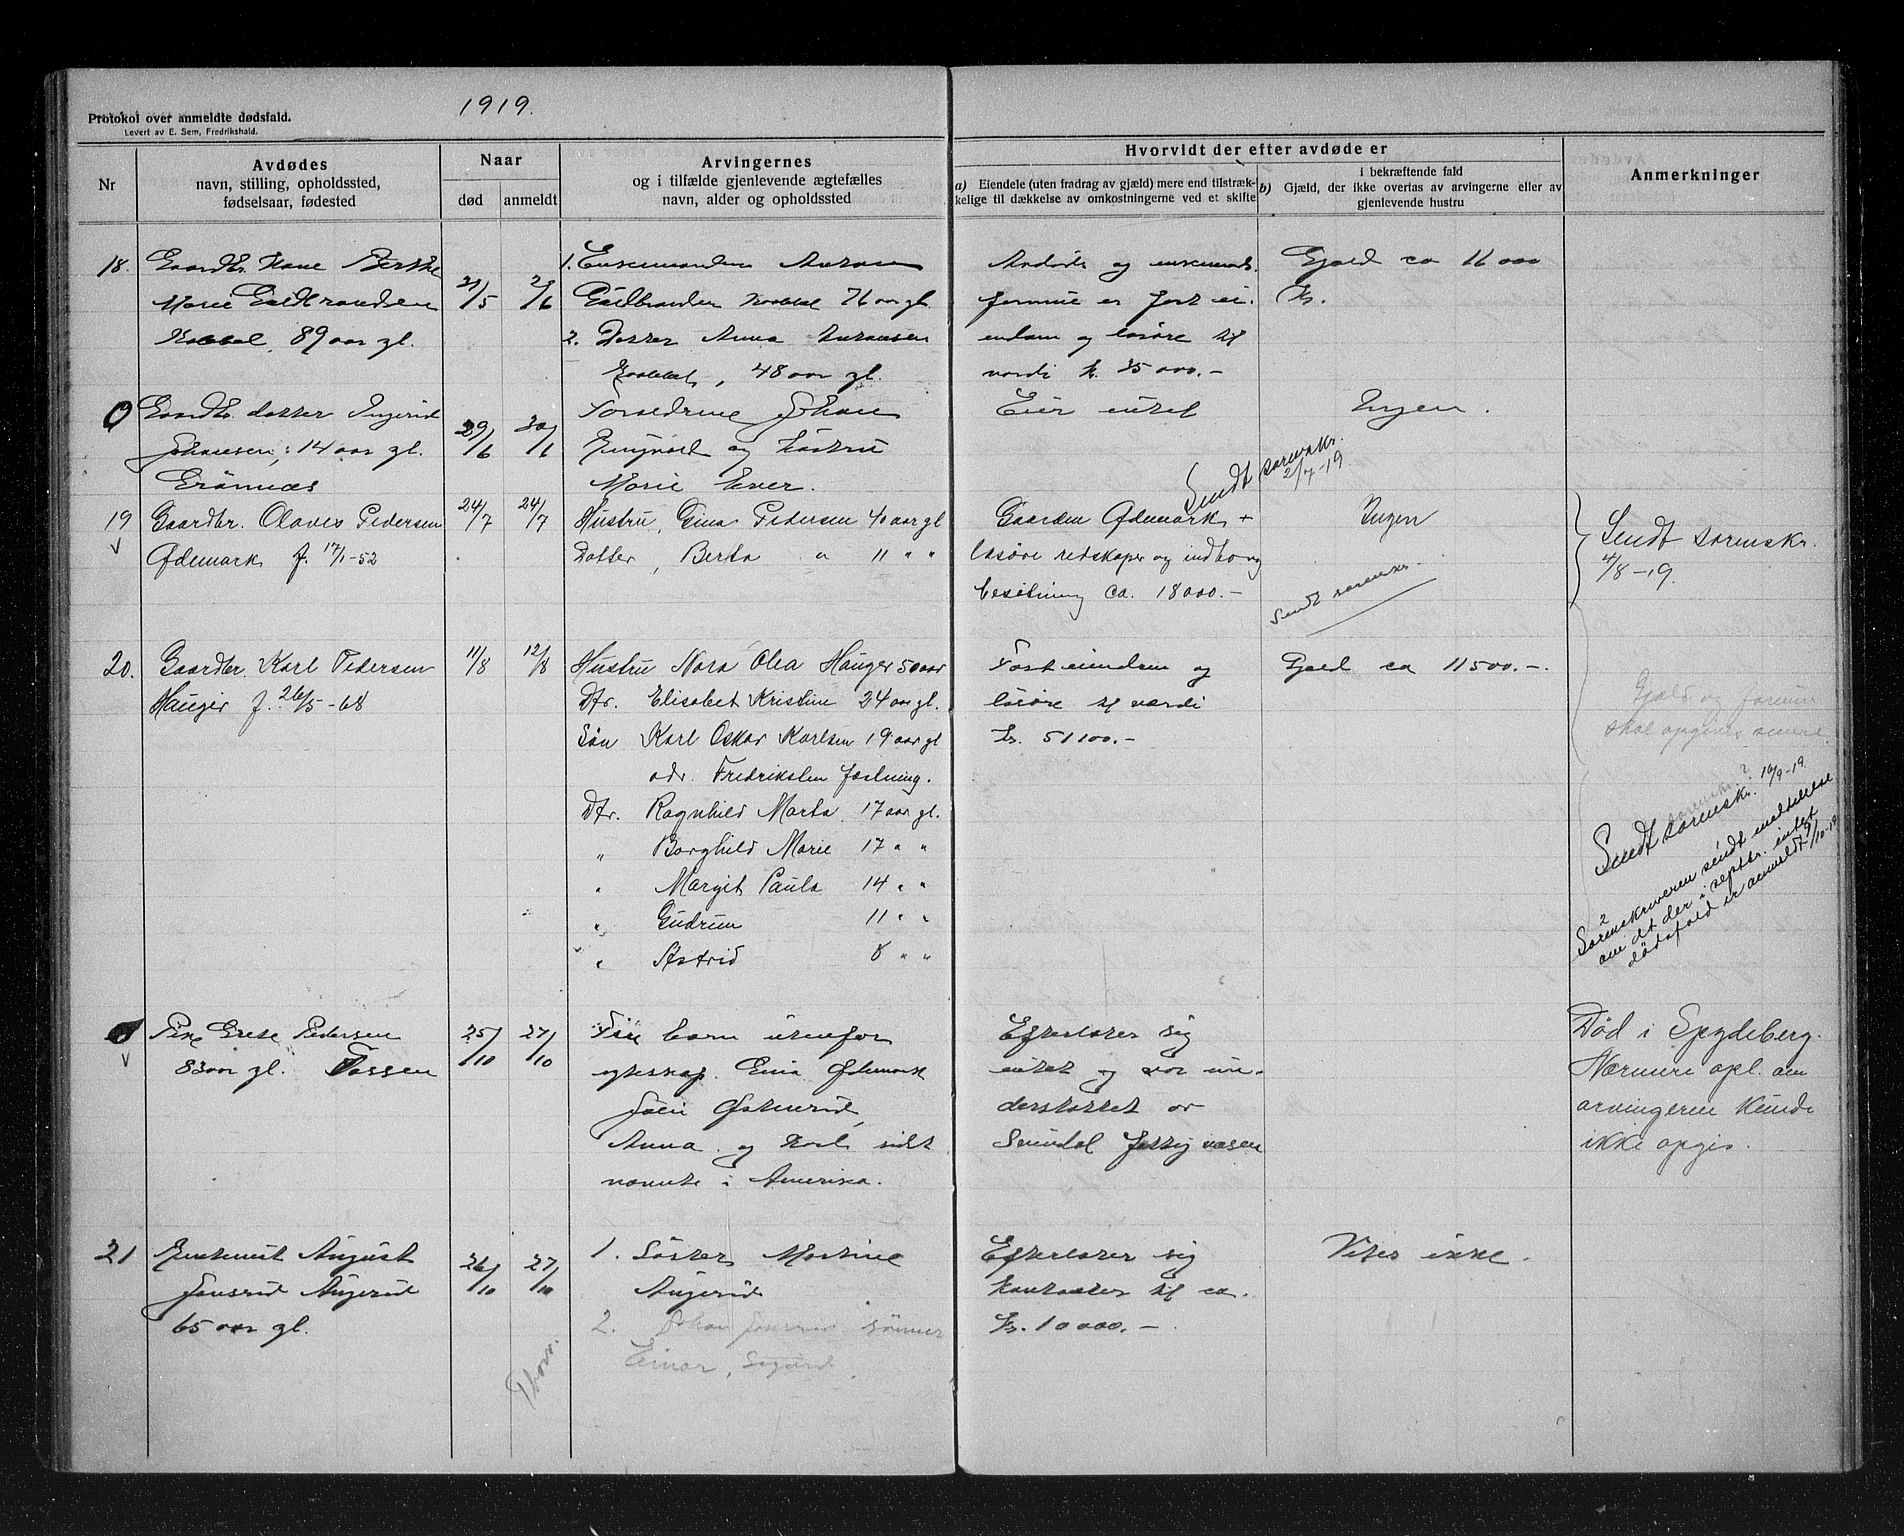 1919.
Protokol over anmeldte dødsfald.
Levert av E. Sem, Fredrikshald.
Nr
Avdødes
navn, stilling, opholdssted,
fødselsaar, fødested
Naar
død
anmeldt
Arvingernes
og i tilfælde gjenlevende ægtefælles
navn, alder og opholdssted
Hvorvidt der efter avdøde er
a) Eiendele (uten fradrag av gjæld) mere end tilstræk-
kelige til dækkelse av omkostningerne ved et skifte
i bekræftende fald
b) Gjæld, der ikke overtas av arvingerne eller av
gjenlevende hustru
Anmerkninger
18.
Gaardbr. Kone Berthe
Marie Guldbrandsen
89 aar gl.
31/5
2/6
1. Enkemanden
76 aar gl.
2. Datter Anna
48 aar gl.
Avdøde og enkemands
formue er fast ei-
endom og løsøre til
værdi kr. 25000.-
Gjæld ca 11000
kr.
0
Gaardbr. datter Ingerid
Johansen, 14 aar gl.
Grønnæs
29/6
30/6
Forældrene Johan
og hustru
Marie
Eier intet
Ingen.
Sendt sorenskr.
2/7-19.
19
Gaardbr. Olaves Pedersen
Ødemark f. 17/1-52
24/7
24/7
Hustru, Gina Pedersen 40 aar gl
Datter, Berta " 11 " "
Gaarden Ødemark +
løsøre redskaper og indbo og
besætning ca. 18000.-
Ingen
Sendt sorenskr.
Sendt sorenskr.
4/8-19.
20.
Gaardbr. Karl Pedersen
Hauger f. 26/5-68
11/8
12/8
Hustru Nora Olea Hauger 50 aar
Dtr. Elisabet Kristine 24 aar gl.
Søn Karl Oskar Karlsen 19 aar gl
adr. Fredriksten fæstning.
Dtr. Ragnhild Marta 17 aar gl.
" Borghild Marie 17 " "
" Margit Paula 14 " "
" Gudrun 11 " "
" Astrid 8 " "
Fast eiendom og
løsøre til værdi
kr. 51100.-
Gjæld ca 11500.-
Gjæld og formue
skal opgives senere.
Sendt sorenskr. 16/9-19.
Sorenskriveren sendt meddelelse
om at der i septbr. intet
dødsfald er anmeldt 9/10-19
0
Pike Grete Pedersen
83 aar gl. Tossen
25/10
27/10
Fire barn utenfor
egteskap. Ødemark
Anna og Karl sidst
nævnte i Amerika.
Efterlater sig
intet og var un-
derstøttet av
fattigvæsen
Død i Spydeberg.
Nærmere opl. om
arvingerne kunde
ikke opgis.
21
August
65 aar gl.
26/10
27/10
1. Søster Martine
2. Johan sønner
Einar, Sigurd
Thorv.
Efterlater sig
kontanter til ca.
kr. 10000.-
Vites ikke.